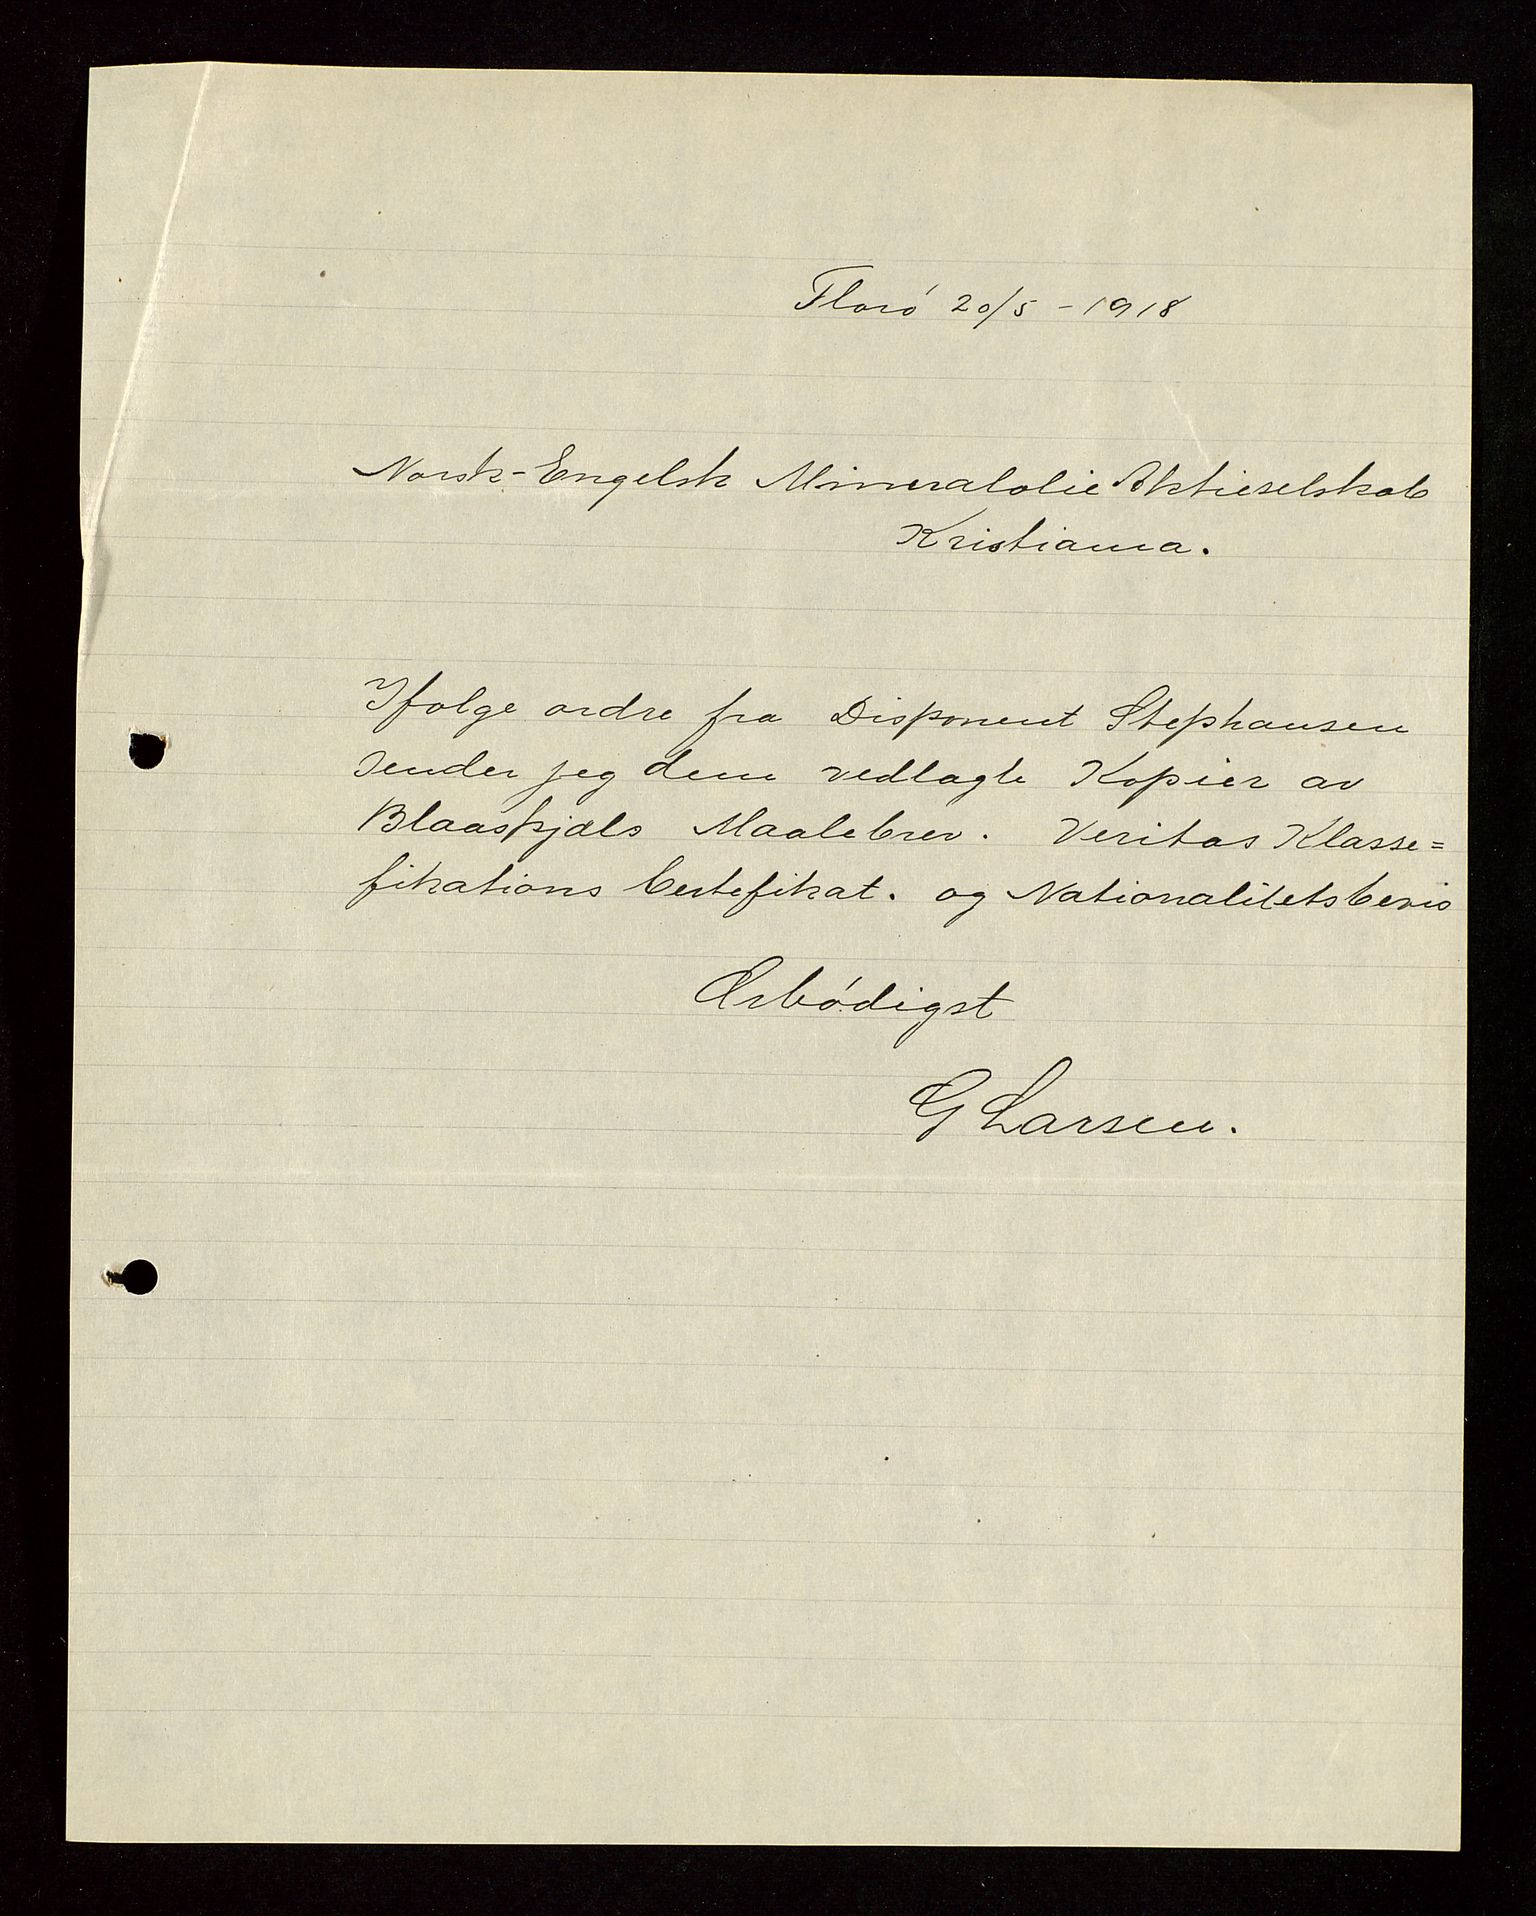 Floró 20/5 - 1918
Norsk-Engelsk Mineralolie Aktieselskab
Kristiania.
Ifølge ordre fra Disponent Stephansen
sender jeg dem vedlagte Kopier av
Blaaskjæls Maalebrev. Veritas Klasse=
fikations Certefikat. og Nationalitetsbevis
Ærbódigst
G Larsen.